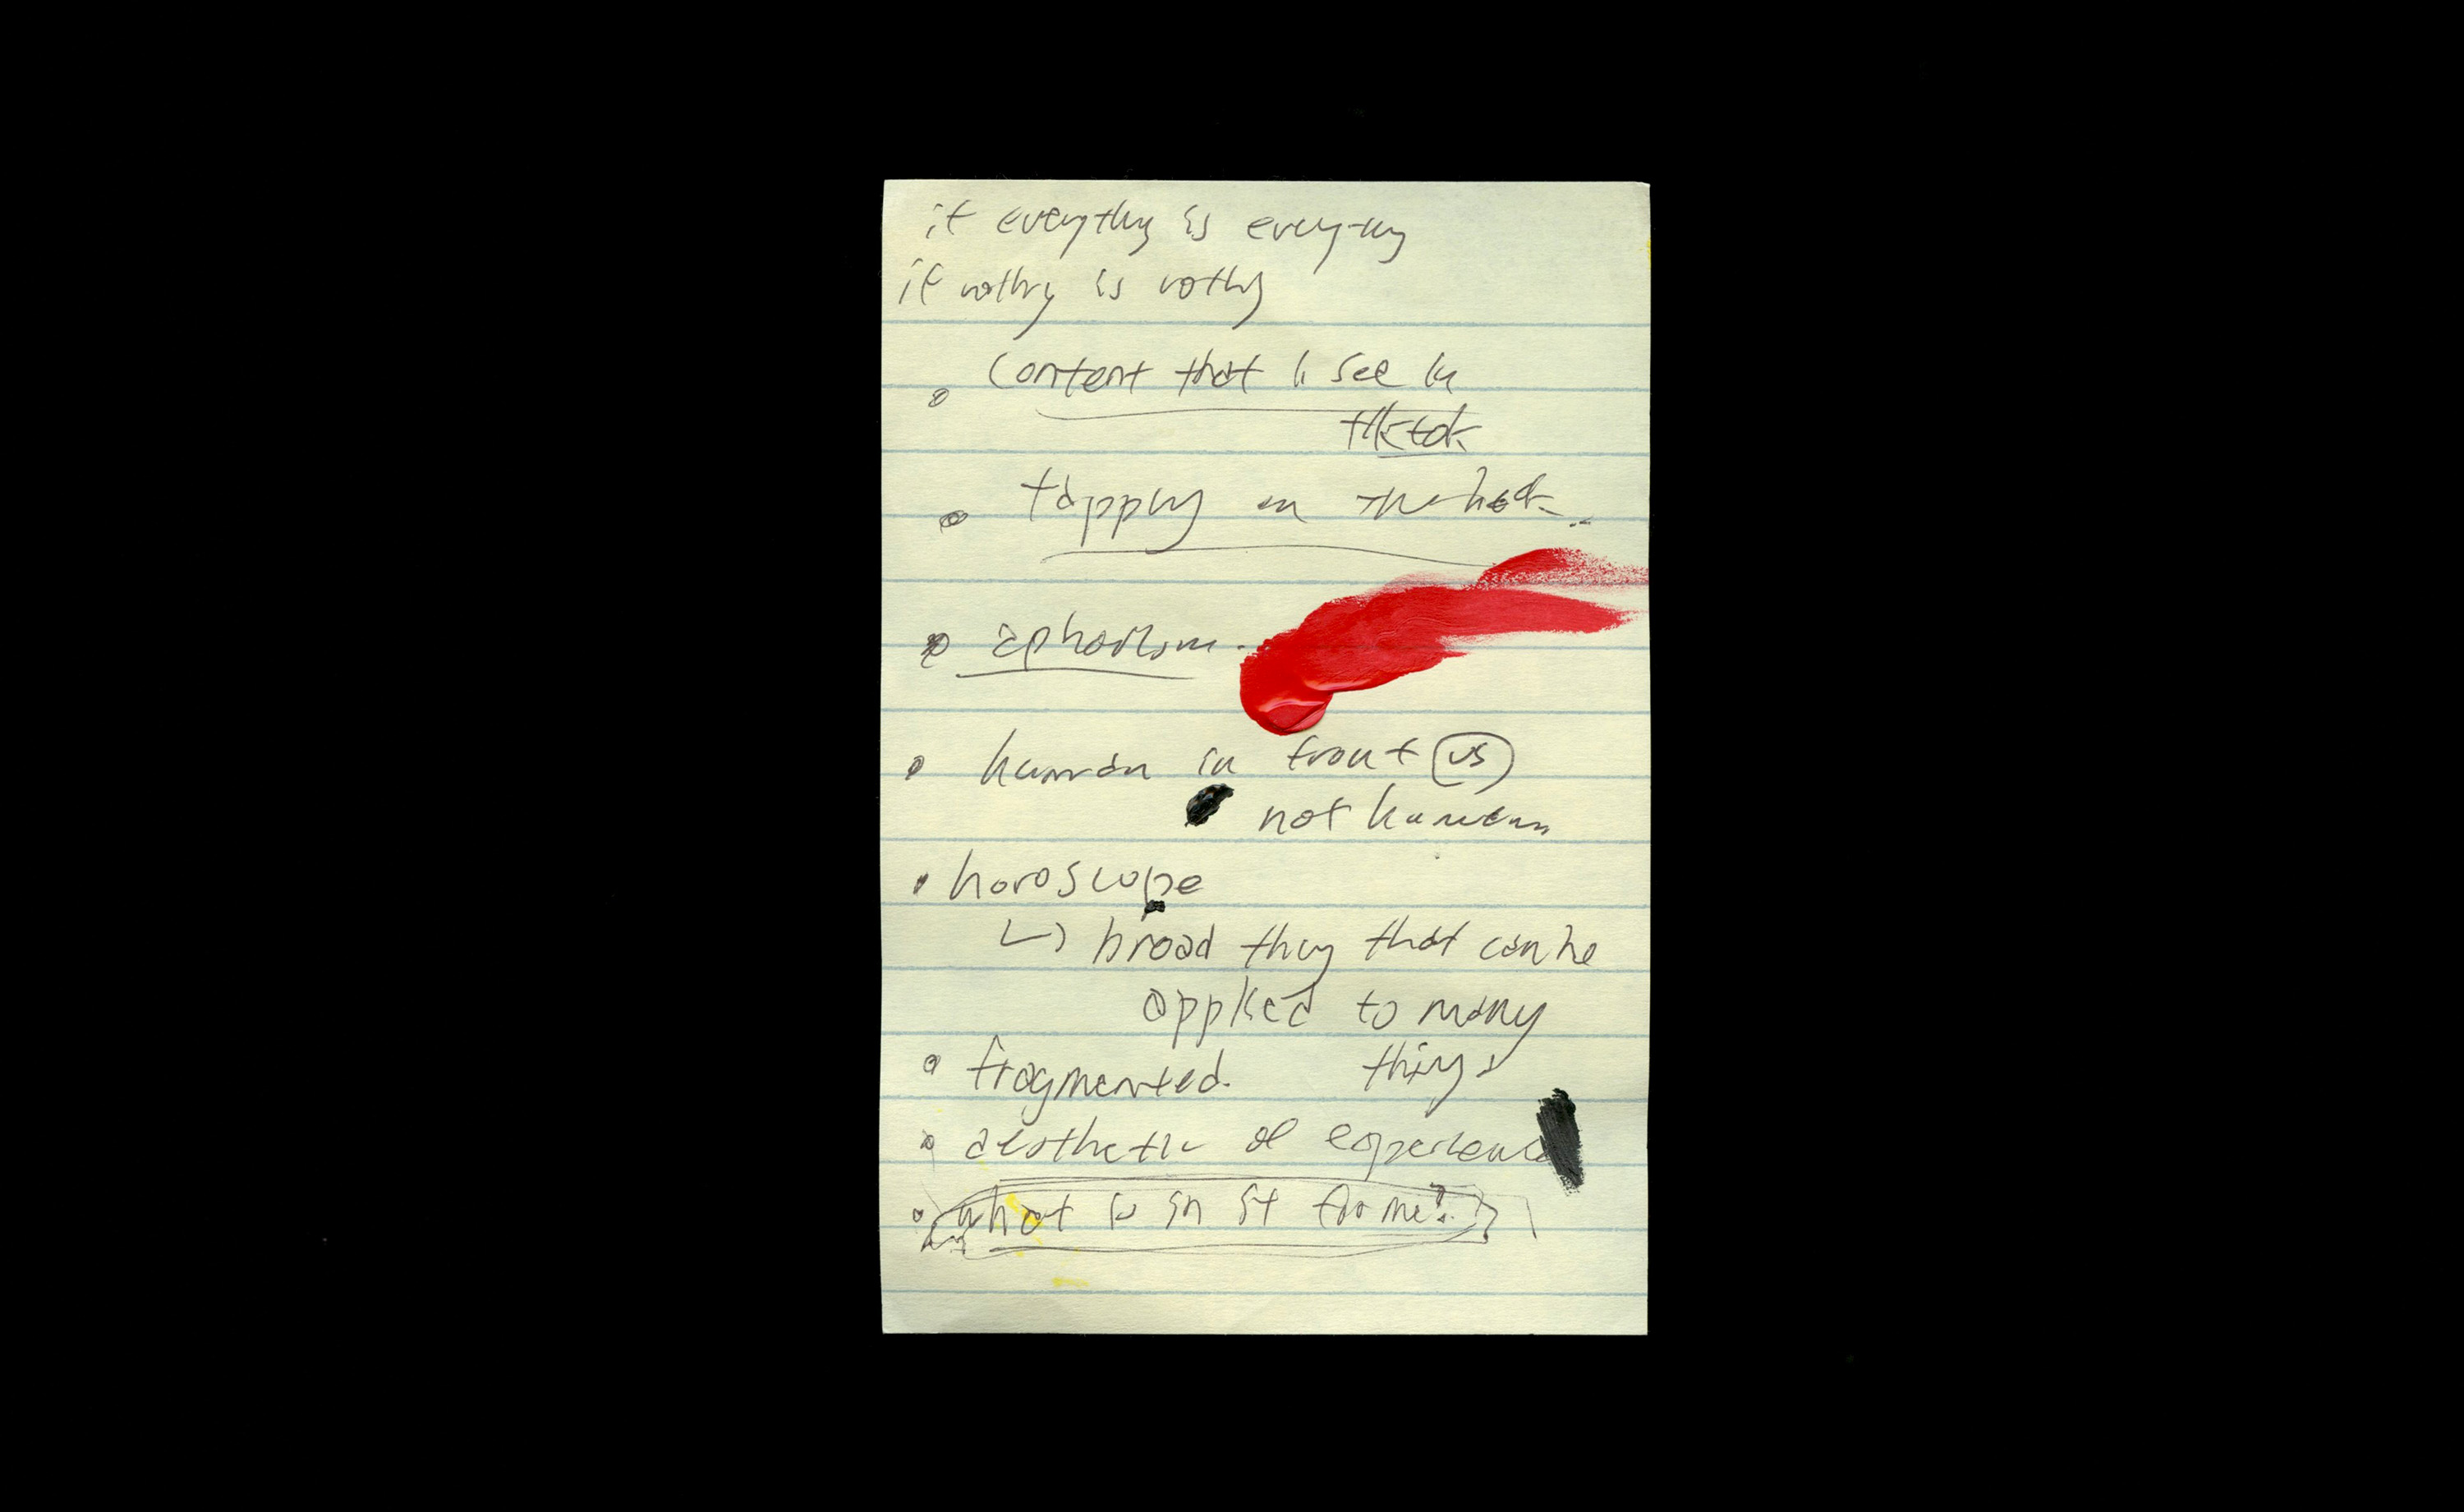 if everything is everything
if nothing is nothing
content that I see in
tiktok
tapping on the
aphorism.
human in front vs
not human
horoscope
↳ broad thing that can be
applied to many
fragmented. things
aesthetic of experience
what is in it for me?